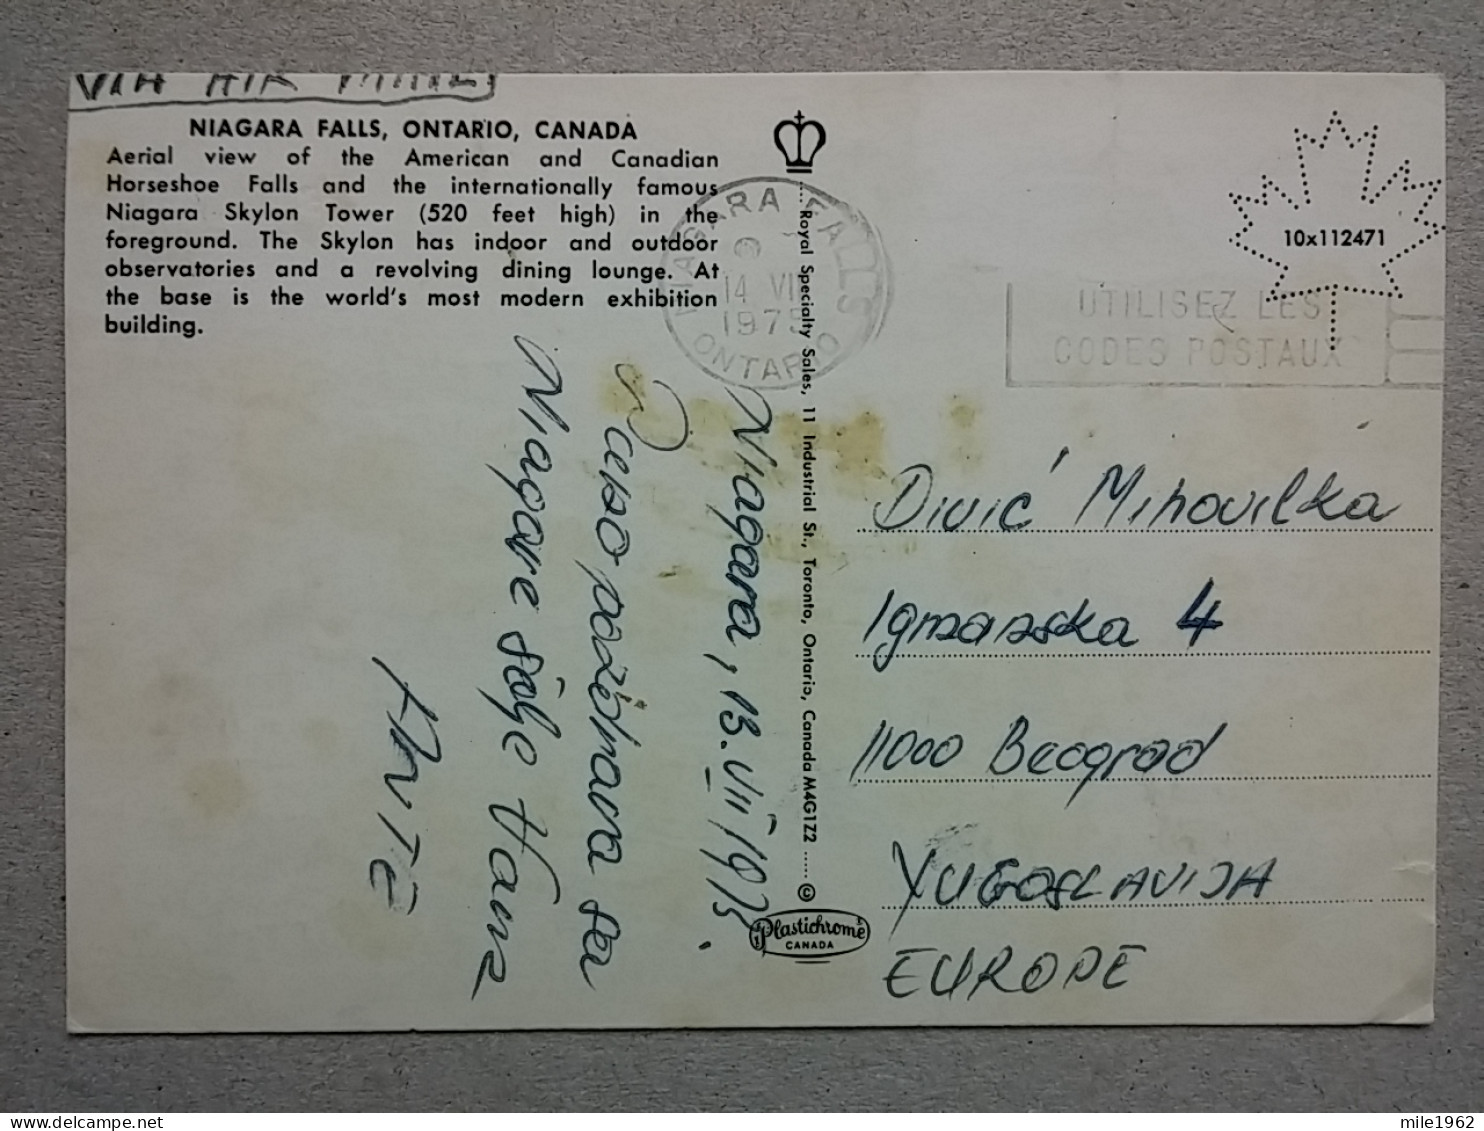 VIA AIR MAIL
NIAGARA FALLS, ONTARIO, CANADA
Aerial view of the American and Canadian
Horseshoe Falls and the internationally famous
Niagara Skylon Tower (520 feet high) in the
foreground. The Skylon has indoor and outdoor
observatories and a revolving dining lounge. At
the base is the world's most modern exhibition
building.
NIAGARA FALLS
14 VII
1975
ONTARIO
10x112471
UTILISEZ LES
CODES POSTAUX
Royal Specialty Sales, 11 Industrial St., Toronto, Ontario, Canada M4G1Z2 ...... ©
Plastichrome
CANADA
Niagara, 13. VII 1975.
Lepo pozdrava sa
Niagare šalje Vama
ANTE
Divić Mihovilka
Igmanska 4
11000 Beograd
YUGOSLAVIJA
EUROPE
mile1962